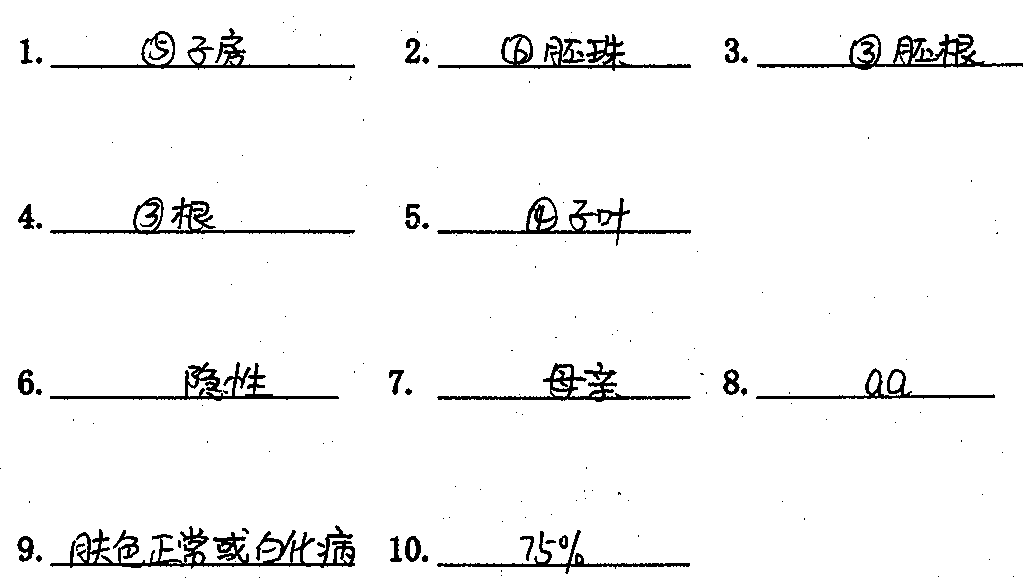 1. ⑤子房 2. ⑥胚珠 3. ③胚根
4. ③根 5. ④子叶
6. 隐性 7. 母亲 8. aa
9. 肤色正常或白化病 10. 75%